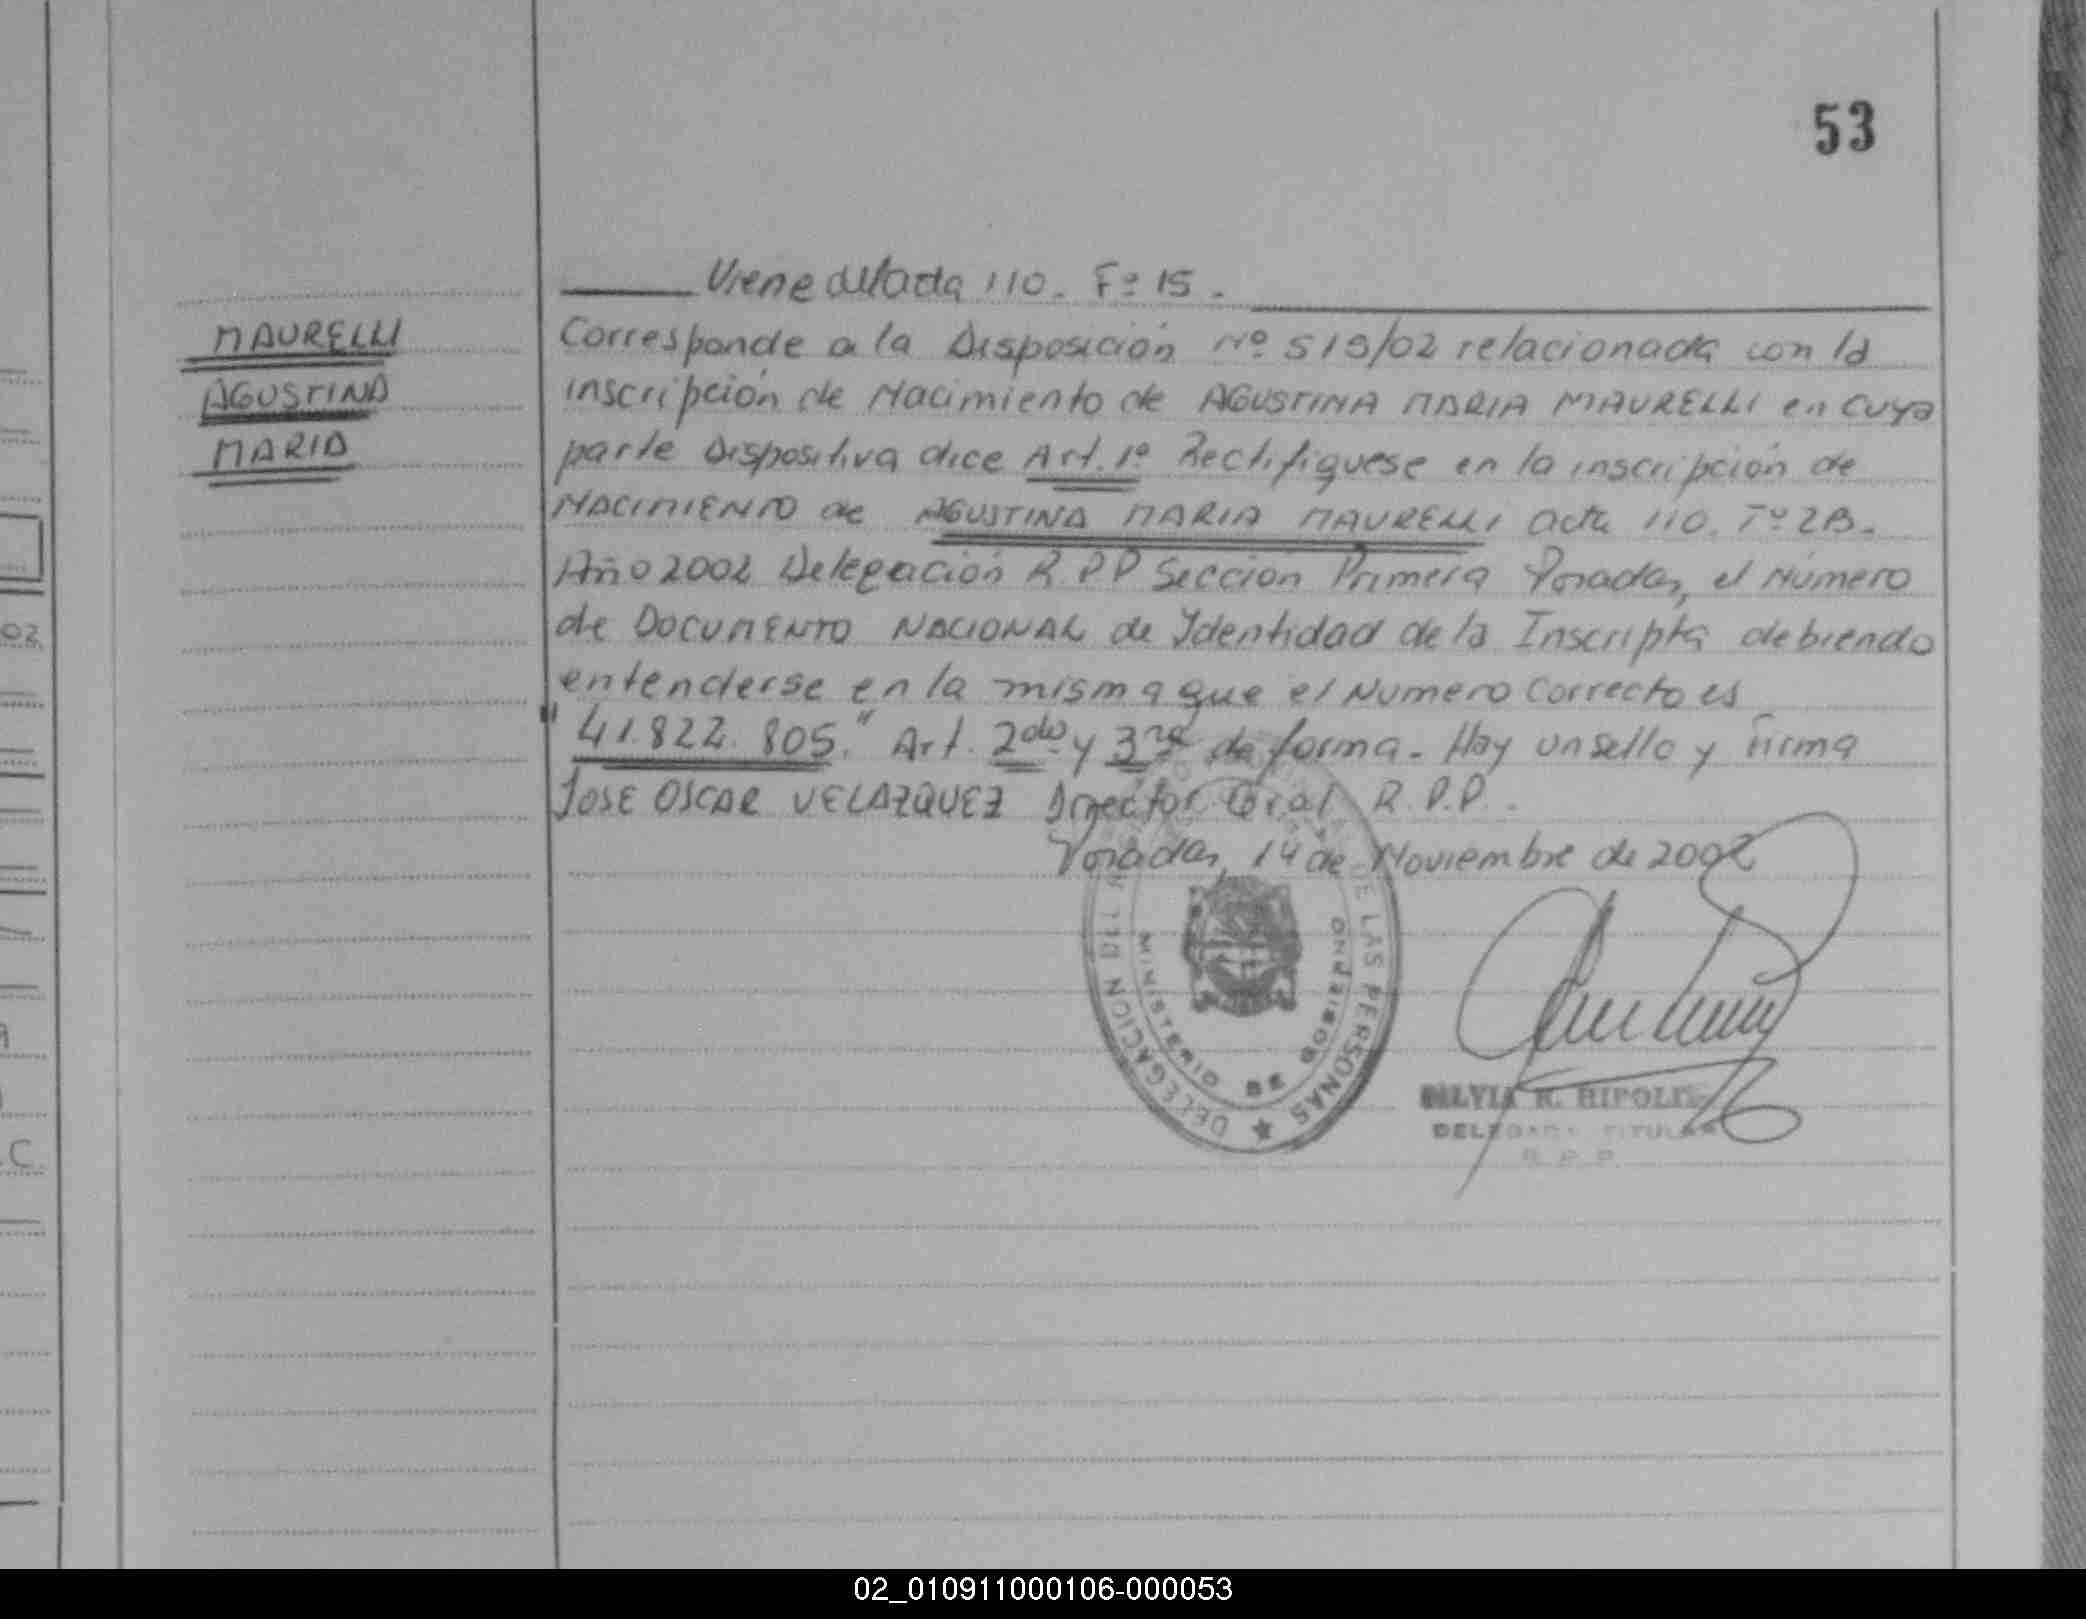 53
Viene del Acta 110. Fº 15.
MAURELLI
AGUSTINA
MARIA
Corresponde a la Disposición Nº 519/02 relacionada con la
inscripción de Nacimiento de AGUSTINA MARIA MAURELLI en cuya
parte Dispositiva dice Art. 1º Rectifiquese en la inscripción de
NACIMIENTO de AGUSTINA MARIA MAURELLI acta 110. Tº 2B.
Año 2002 Delegación R.P.P Sección Primera Posadas, el Número
de DOCUMENTO NACIONAL de Identidad de la Inscripta debiendo
entenderse en la misma que el Numero Correcto es
"41.822.805." Art. 2do y 3ro de forma. Hay un sello y Firma
JOSE OSCAR VELAZQUEZ Director Gral R.P.P.
Posadas, 14 de Noviembre de 2002
DELEGACION DEL DE LAS PERSONAS
MINISTERIO DE GOBIERNO
SILVIA R. RIPOLL
DELEGADA TITULAR
R.P.P.
02
C.
02_010911000106-000053